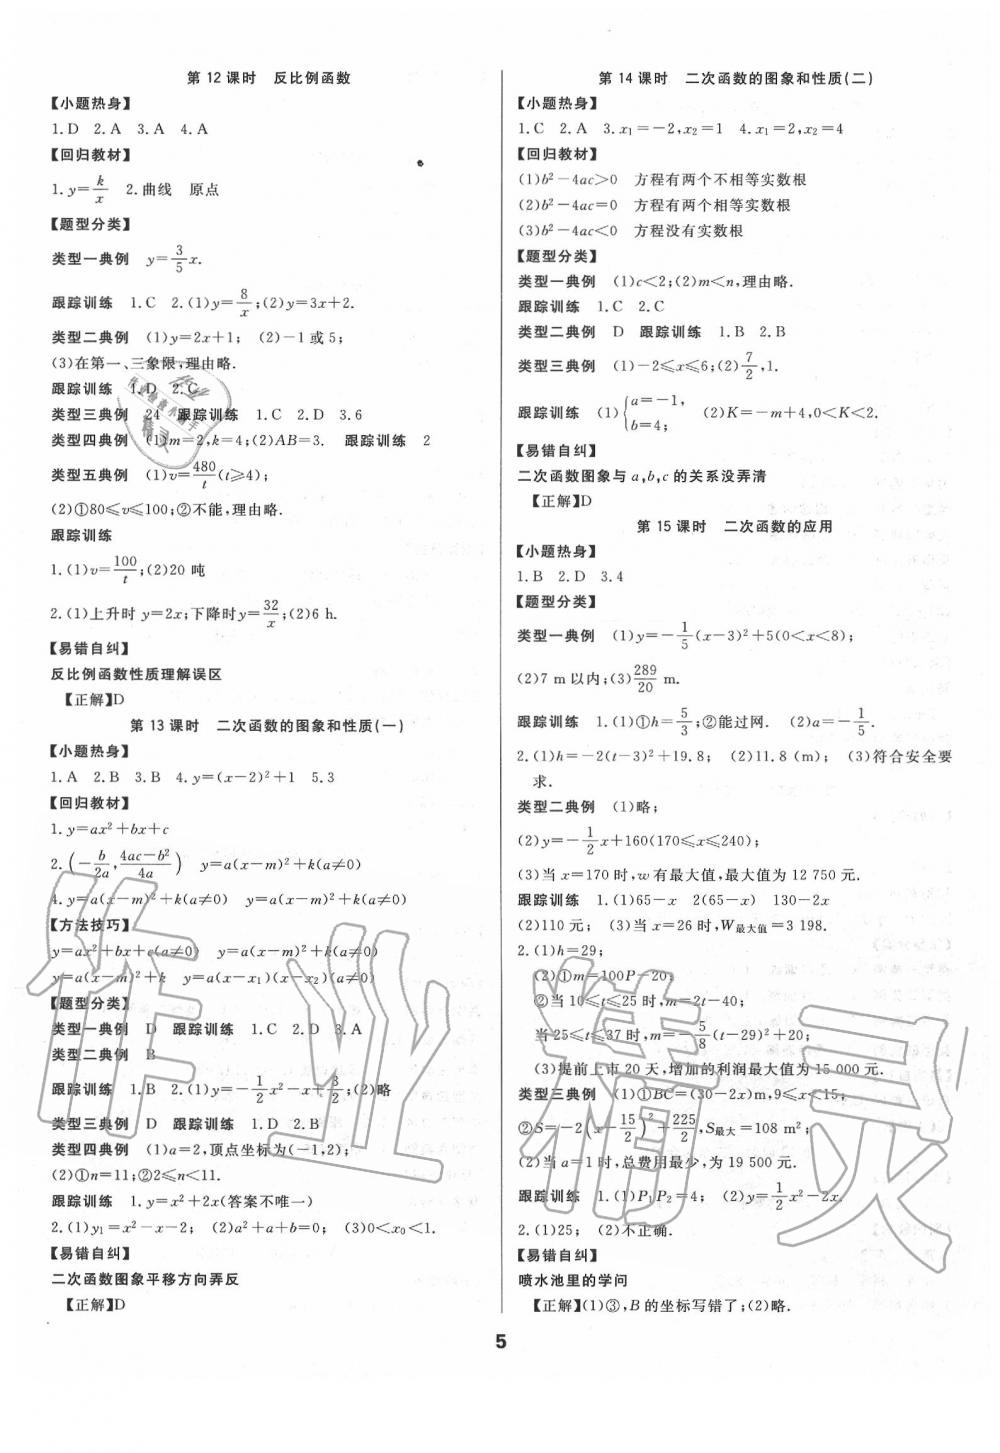 第12课时 反比例函数
【小题热身】
1.D 2.A 3.A 4.A
【回归教材】
1.y=k/x 2.曲线 原点
【题型分类】
类型一典例 y=3/5x.
跟踪训练 1.C 2.(1)y=8/x;(2)y=3x+2.
类型二典例 (1)y=2x+1; (2)-1或5;
(3)在第一、三象限,理由略.
跟踪训练 1.D 2.C
类型三典例 24 跟踪训练 1.C 2.D 3.6
类型四典例 (1)m=2,k=4;(2)AB=3. 跟踪训练 2
类型五典例 (1)v=480/t(t≥4);
(2)①80≤v≤100;②不能,理由略.
跟踪训练
1.(1)v=100/t;(2)20 吨
2.(1)上升时 y=2x;下降时y=32/x;(2)6 h.
【易错自纠】
反比例函数性质理解误区
【正解】D
第13课时 二次函数的图象和性质(一)
【小题热身】
1.A 2.B 3.B 4.y=(x-2)²+1 5.3
【回归教材】
1.y=ax²+bx+c
2.(-b/2a,4ac-b²/4a) y=a(x-m)²+k(a≠0)
4.y=a(x-m)²+k(a≠0) y=a(x-m)²+k(a≠0)
【方法技巧】
y=ax²+bx+c(a≠0) y=a(x-m)²+k(a≠0)
y=a(x-m)²+k y=a(x-x₁)(x-x₂)(a≠0)
【题型分类】
类型一典例 D 跟踪训练 1.C 2.D 3.A
类型二典例 B
跟踪训练 1.B 2.(1)y=-1/2x²-x+3/2;(2)略
类型三典例 D 跟踪训练 1.D 2.B
类型四典例 (1)a=2,顶点坐标为(-1,2);
(2)①n=11;②2≤n<11.
跟踪训练 1.y=x²+2x(答案不唯一)
2.(1)y₁=x²-x-2; (2)a²+a+b=0; (3)0<x₀<1.
【易错自纠】
二次函数图象平移方向弄反
【正解】D
第14课时 二次函数的图象和性质(二)
【小题热身】
1.C 2.A 3.x₁=-2,x₂=1 4.x₁=2,x₂=4
【回归教材】
(1)b²-4ac>0 方程有两个不相等实数根
(2)b²-4ac=0 方程有两个相等实数根
(3)b²-4ac<0 方程没有实数根
【题型分类】
类型一典例 (1)c<2;(2)m<n,理由略.
跟踪训练 1.C 2.C
类型二典例 D 跟踪训练 1.B 2.B
类型三典例 (1)-2≤x≤6;(2)7/2,1.
跟踪训练 (1){a=-1, b=4; (2)K=-m+4,0<K<2.
【易错自纠】
二次函数图象与a,b,c的关系没弄清
【正解】D
第15课时 二次函数的应用
【小题热身】
1.B 2.D 3.4
【题型分类】
类型一典例 (1)y=-1/5(x-3)²+5(0<x<8);
(2)7 m以内;(3)289/20 m.
跟踪训练 1.(1)①h=5/3;②能过网. (2)a=-1/5.
2.(1)h=-2(t-3)²+19.8; (2)11.8 (m); (3)符合安全要
求.
类型二典例 (1)略;
(2)y=-1/2x+160(170≤x≤240);
(3)当 x=170时,w有最大值,最大值为12 750元.
跟踪训练 1.(1)65-x 2(65-x) 130-2x
(2)110元; (3)当x=26时,W最大值=3 198.
2.(1)h=29;
(2)①m=100P-20;
②当10≤t≤25时,m=2t-40;
当25≤t≤37时,m=-5/8(t-29)²+20;
(3)提前上市20天,增加的利润最大值为15 000元.
类型三典例 (1)①BC=(30-2x)m,9≤x<15;
②S=-2(x-15/2)²+225/2,S最大=108 m²;
(2)当a=1时,总费用最少,为19 500元.
跟踪训练 1.(1)P₁P₂=4; (2)y=1/2x²-2x.
2.(1)25; (2)不正确.
【易错自纠】
喷水池里的学问
【正解】(1)③,B的坐标写错了;(2)略.
5
作业精灵